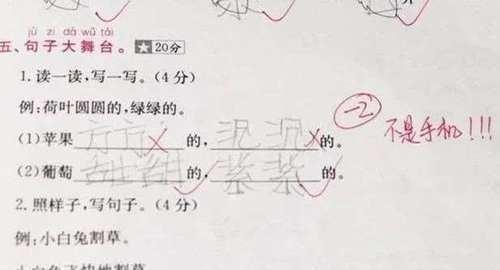 jù zi dà wǔ tái
五、句子大舞台。★20分
1.读一读,写一写。(4分)
例:荷叶圆圆的,绿绿的。
(1)苹果方方的,的。
-2
不是手机!!!
(2)葡萄甜甜的,紫紫的。
2.照样子,写句子。(4分)
例:小白兔割草。
小白兔飞快地割草